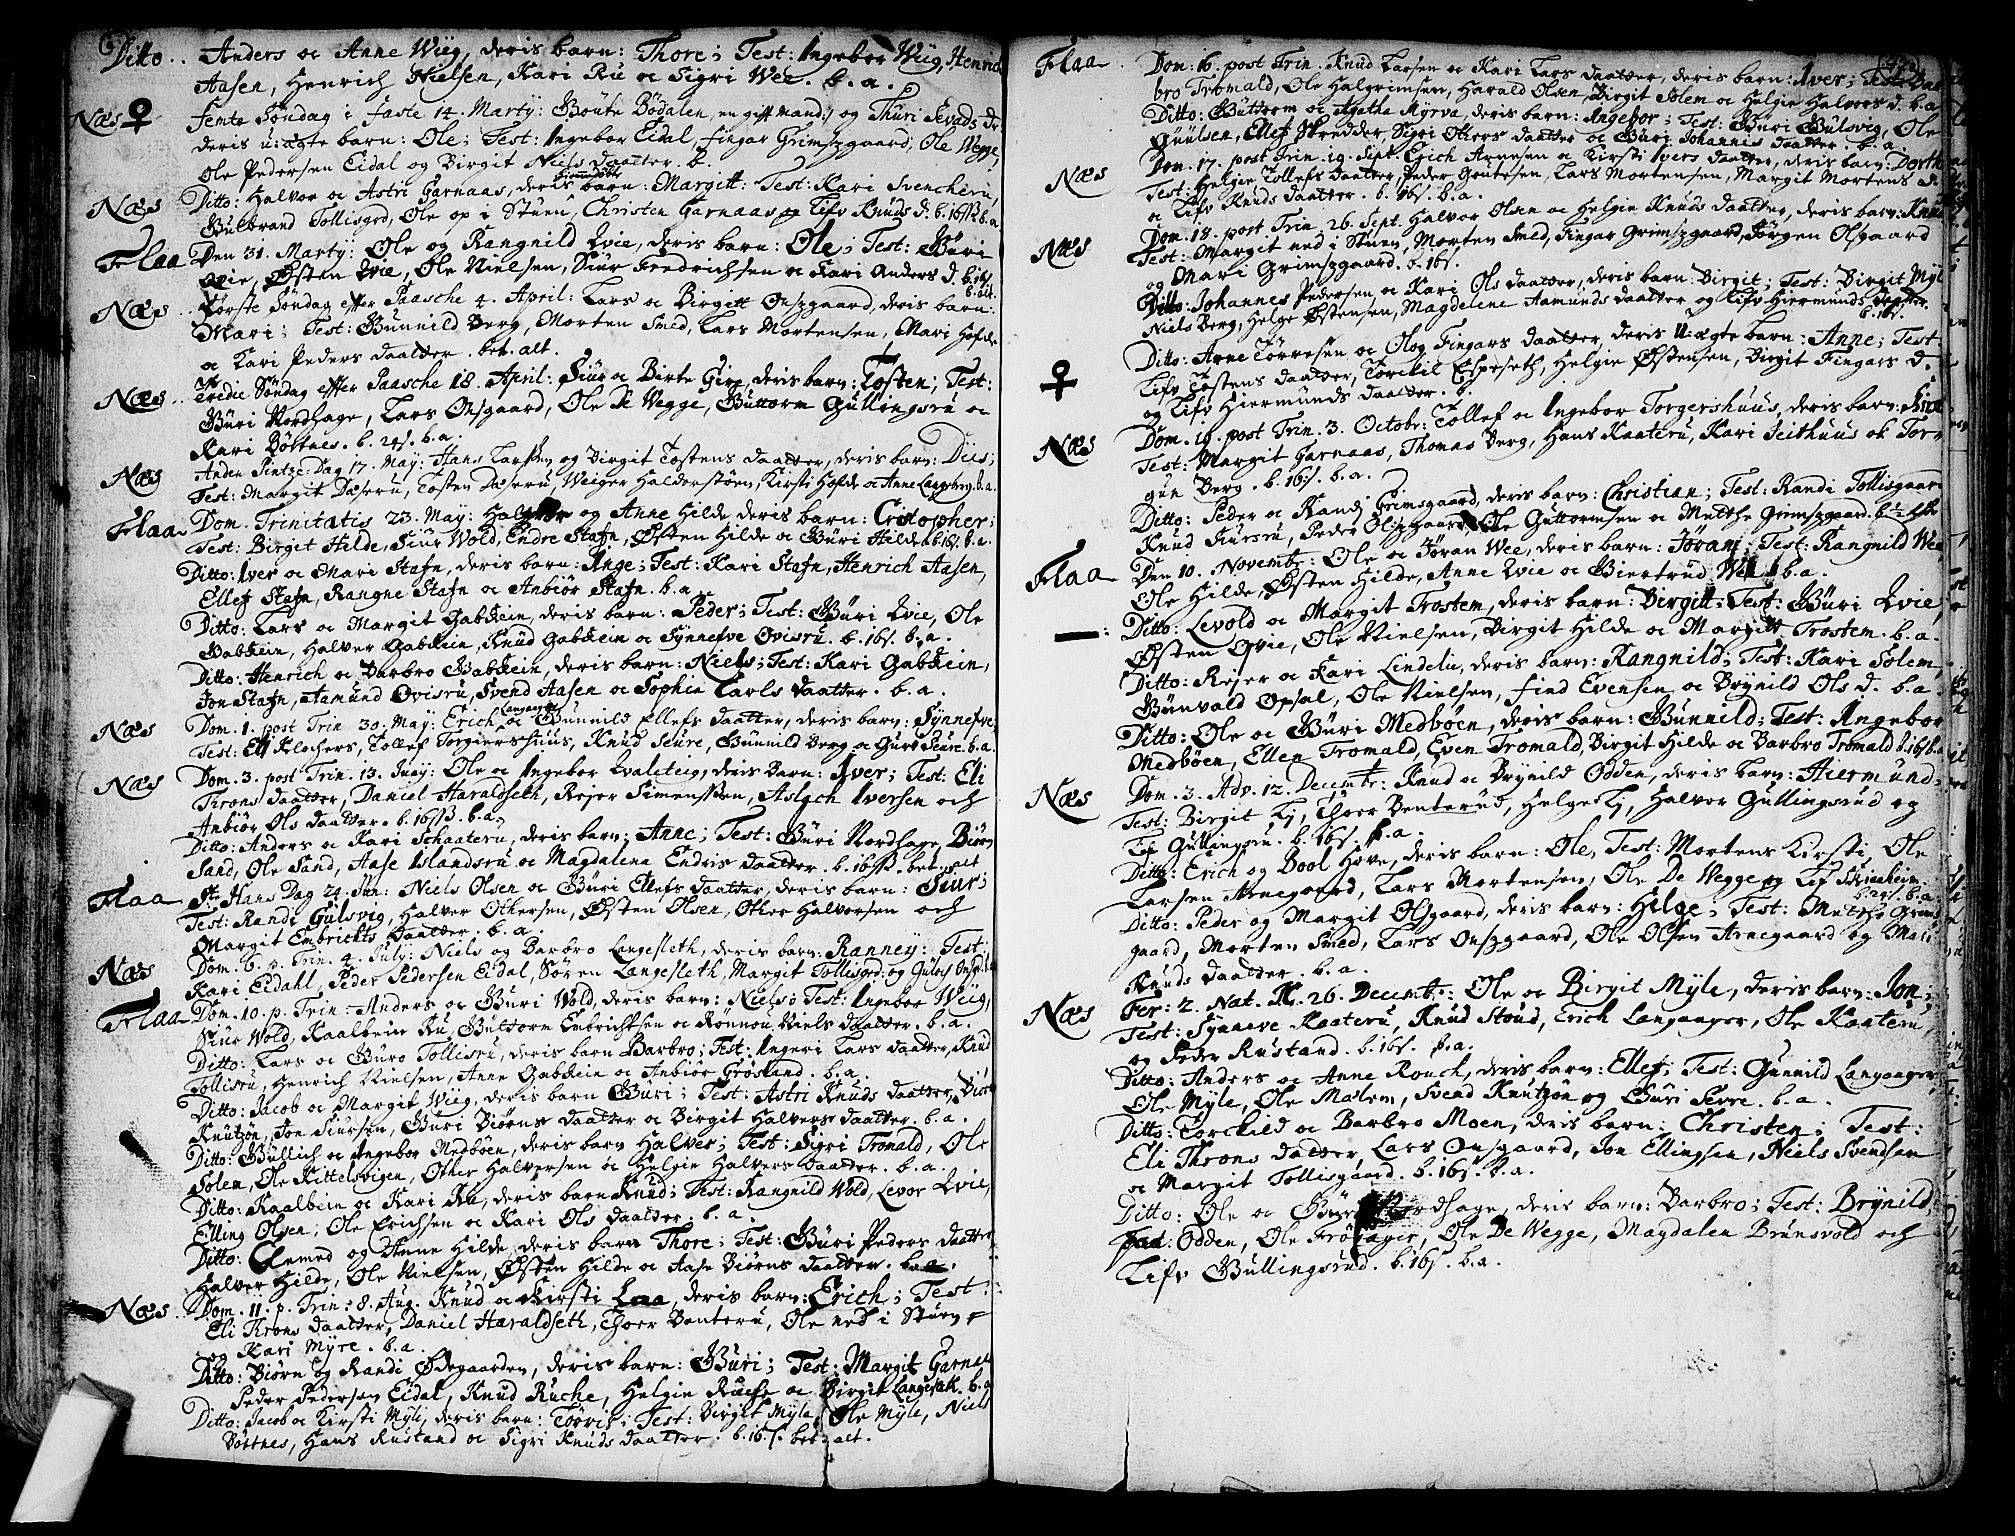 Ditto.. Anders oc Anne Wiig, deris barn: Thore; Test: Ingebor Wiig, Henrich
Aasen, Henrich Nielsen, Kari Ru oc Sigri Wee. b.a.
Næs ♀ Femte Søndag i faste 14. Marty: Boute Bødalen, en gift Mand, og Thuri Sevads D
deris u:ægte barn: Ole; Test: Ingebor Eidal, Fingar Grimsgaard, Ole Wegge,
Ole Pedersen Eidal og Birgit Niels daatter. b.
Næs Ditto: Halvor oc Astri Garnaas, deris barn: Margitt: Test: Kari Svencheru,
Gulbrand Tollisgrd, Ole op i Stuen, Christen Garnaas og Lifv Knuds d. b. 16 b.a
Flaa Den 31. Marty: Ole og Rangnild Qvie, deris barn: Ole; Test: Guri
Qvie, Østen Qvie, Ole Nielsen, Siur Fredrichsen oc Kari Anders d. b. 16
b. alt.
Næs.. Første Søndag efter Paasche 4. April: Lars oc Birgitt Onsgaard, deris barn:
Mari; Test: Gunnild Berg, Morten Smed, Lars Mortensen, Mari Hofde
oc Kari Peders daatter. bet. alt.
Næs.. Tredie Søndag efter Paasche 18. April: Siur oc Birte Girp, deris barn: Tosten; Test:
Guri Nordhage, Lars Onsgaard, Ole De Wegge, Guttorm Gullingsru oc
Kari Bøttnes. b. 24s. b.a.
Næs Anden Pintze Dag 17. May: Hans Larssen og Birgit Tostens daatter, deris barn: Diis;
Test: Margit Daseru, Tosten Daseru, Weiger Halderstøen, Kirsti Hofde oc Anne Langeberg. b.a.
Flaa Dom. Trinitatis 23. May: Halvor og Anne Hilde, deris barn: Cristopher;
Test: Birgit Hilde, Siur Wold, Endre Stafn, Østen Hilde oc Guri Hilde b. 16s. b.a.
Ditto: Iver oc Mari Stafn, deris barn: Inge; Test: Kari Stafn, Henrich Aasen,
Ellef Stafn, Rangne Stafn oc Anbiør Stafn. b.a.
Ditto: Lars oc Margit Gabchein, deris barn: Peder; Test: Guri Qvie, Ole
Gabchein, Halver Gabchein, Knud Gabchein oc Synnefve Ovisru. b. 16s. b.a.
Ditto: Henrich oc Barbro Gabchein, deris barn: Niels; Test: Kari Gabchein,
Jon Stafn, Aamund Ovisru, Svend Aasen oc Sophie Carls daatter. b.a.
Næs Dom. 1. post Trin. 30. May: Erich Langanger oc Gunnild Ellefs daatter, deris barn: Synnefve;
Test: Elj Klochers, Tollef Torgiershuus, Knud Seure, Gunnild Berg oc Guro Seure. b.a.
Næs Dom. 3. post Trin. 13. Juny: Ole oc Ingebor Qvaleteig, deris barn: Iver; Test: Eli
Throns daatter, Daniel Haraldseth, Rejer Simenssen, Aslach Iversen och
Anbiør Ols daatter. b. 16s. b.a.
Ditto: Anders oc Kari Schaateru, deris barn: Anne; Test: Guri Nordhage, Biørn
Sand, Ole Sand, Aase Islandsru oc Magdalena Endris daatter. b. 16s. bet. alt
Flaa St. Hans Dag 24. Jun: Niels Olsen oc Guri Ellefs daatter, deris barn: Siur;
Test: Randi Gulsvig, Halver Othersen, Østen Olsen, Other Halvorsen och
Margit Embrichts daatter. b.a.
Næs Dom. 6. p. Trin. 4. July: Niels og Barbro Langesleth, deris barn: Ranney: Test:
Kari Eidahl, Peder Pedersen Eidal, Søren Langesleth, Margit Tollisgrd: og
Flaa Dom. 10. p. Trin: Anders oc Guri Wold, deris barn: Niels; Test: Ingebor Wiig,
Siur Wold, Kaalbein Ru, Guttorm Enbrichtsen oc Rønnou Niels daatter. b.a.
Ditto: Lars oc Guro Tollisru, deris barn Barbro; Test: Ingeri Lars daatter, Knud
Tollisru, Henrich Nielsen, Anne Gabchein oc Anbiør Grøsland. b.a.
Ditto: Jacob oc Margit Wiig, deris barn Guri; Test: Astri Knuds daatter, Biørn
Knutzøn, Jon Siursen, Guri Biørns daatter oc Birgit Halvors daatter. b.a.
Ditto: Gullich oc Ingebor Medbøen, deris barn Halver; Test: Sigri Tromald, Ole
Solem, Ole Kittelsvigen, Other Halversen oc Helgie Halvers daatter. b.a.
Ditto: Kaalbein oc Kari Ru, deris barn Knud; Test: Rangnild Wold, Levor Qvie,
Elling Olsen, Ole Erichsen oc Kari Ols daatter. b.a.
Ditto: Anmed og Anne Hilde, deris barn Thore; Test: Guri Peders daatter
Halver Hilde, Ole Nielsen, Østen Hilde oc Aase Biørns daatter. b.a.
Næs.. Dom. 11. p. Trin: 8. Aug. Knud oc Kirsti Laa, deris barn: Erich; Test:
Eli Throns daatter, Daniel Haraldseth, Thoer Bonteru, Ole ned i Stuen
og Kari Myre. b.a.
Ditto: Biørn og Randi Ødegaarden, deris barn: Guri; Test: Margit Garnaas
Peder Pedersen Eidal, Knud Ruche, Helgie Ruche oc Birgit Langeslet. b.a
Ditto: Jacob oc Kirsti Myli, deris barn: Torris; Test: Birgit Myle, Ole Myle, Niels
Bøttnes, Hans Rustand oc Sigri Knuds daatter. b. 16s. bet: alt.
Flaa Dom. 16. post Trin. Knud Larsen oc Kari Lars daatter, deris barn: Iver; Test: Bar
bro Tromald, Ole Halgrimsen, Harald Olsen, Birgit Solem oc Helgie Halvors d. b.a
Ditto: Guttorm oc Agatha Myrva, deris barn: Ingebor; Test: Guri Gulsvig, Ole
Guulsen, Ellef Skredder, Sigri Others daatter oc Guri Johannis daatter. b.a
Næs Dom. 17. post Trin. 19. Sept. Erich Arnesen oc Kirsti Ivers daatter, deris barn: Dorthe
Test: Helgie Tollefs daatter, Peder Goutesen, Lars Mortensen, Margit Mortens d
oc Lifv Knuds daatter. b. 16s. b.a.
Næs Dom. 18. post Trin. 26. Sept. Halvor Olsen oc Helgie Knuds daatter, deris barn: Knud
Test: Margit ned i Stuen, Morten Smed, Fingar Grimsgaard, Jørgen Olsgaard
og Mari Grimsgaard. b. 16s.
Ditto: Johannes Pedersen oc Kari Ols daatter, deris barn Birgit; Test: Birgit Myle
Niels Berg, Helge Østensen, Magdelene Aamunds daatter og Lifv Hiermunds daatter.
b. 16s.
♀ Ditto: Arne Torresen oc Olog Fingars daatter, deris u:ægte barn: Anne; Test
Lifv Tostens daatter, Torckil Espeseth, Helgie Østensen, Birgit Fingars d.
og Lifv Hiermunds daatter. b.
Næs Dom. 19. post Trin. 3. Octobr: Tollef oc Ingebor Torgershuus, deris barn:
Test: Margit Garnaas, Thomas Berg, Hans Kaateru, Kari Seithuus oc Tor-
gun Berg. b. 16s. b.a.
Ditto: Peder oc Randj Grimsgaard, deris barn: Christian; Test: Randi Tollisgaard
Knud Siursru, Peder Olsgaard, Ole Guttormsen oc Metthe Grimsgaard.
Flaa Den 10. Novembr: Ole oc Jøran Wee, deris barn: Jøran; Test: Rangnild Wee,
Ole Hilde, Østen Hilde, Anne Qvie oc Biertrud Wee b.a.
—: Ditto: Levold oc Margit Trostem, deris barn: Birgitt: Test: Guri Qvie,
Østen Qvie, Ole Nielsen, Birgit Hilde oc Margitt Trostem. b.a.
Ditto: Rejer oc Kari Lindelu, deris barn: Rangnild; Test: Kari Solem,
Gunvald Opsal, Ole Nielsen, Find Evensen oc Brynild Ols d. b.a.
Ditto: Ole oc Guri Medbøen, deris barn: Gunneld; Test: Ingebor
Medbøen, Ellen Tromald, Even Tromald, Birgit Hilde oc Barbro Tromald b. 16s b.a
Næs Dom. 3. Adv. 12. Decembr: Knud oc Brynild Odden, deris barn: Hiermund;
Test: Birgit Lj, Thoer Benterud, Helge Lj, Halvor Gullingsrud og
Lif Gullingsru. b. 16s. b.a.
Ditto: Erich og Bool Hove, deris barn: Ole, Test: Mortens Kirsti, Ole
Larsen Arnegaard, Lars Mortensen, Ole De Wegge og Lif Skinnheim.
b. 24s. b.a.
Ditto: Peder og Margit Olsgaard, deris barn: Helge; Test: Metthe Grims
gaard, Morten Smed, Lars Onsgaard, Ole Olsen Arnegaard og Mari
Knuds daatter. b.a.
Næs Fer: 2. Nat. X. 26. Decembr: Ole oc Birgit Myle, deris barn: Jon;
Test: Synneve Kaateru, Knud Stoud, Erich Langanger, Ole Kaateru,
og Peder Rustand. b. 16s. b.a.
Ditto: Anders oc Anne Rouch, deris barn: Ellef; Test: Gunnild Langanger,
Ole Myle, Ole Mælem, Svend Knutzøn og Guri Sevre. b.a.
Ditto: Torchild oc Barbro Moen, deris barn: Christen; Test:
Eli Throns daatter, Lars Onsgaard, Jon Ellingsen, Niels Svendsen
oc Margit Tollisgaard. b. 16s. b.a.
Ditto: Ole oc Guri Nordhage, deris barn: Barbro; Test: Brynild
Odden, Ole Frøsager, Ole De Wegge, Magdalen Brunsvold och
Lifv Gullingsrud. b. 16s. b.a.